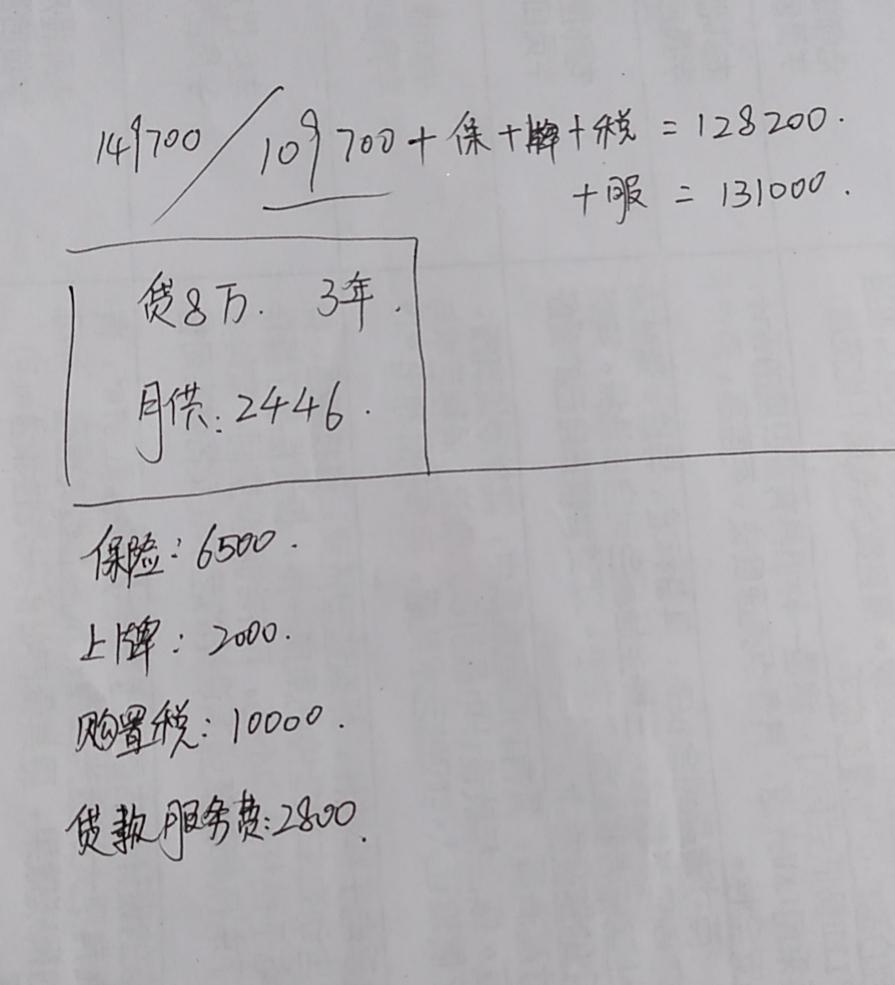 149700 / 109700 + 保 + 牌 + 税 = 128200.
+ 服 = 131000.
贷8万. 3年.
月供: 2446.
保险: 6500.
上牌: 2000.
购置税: 10000.
贷款服务费: 2800.